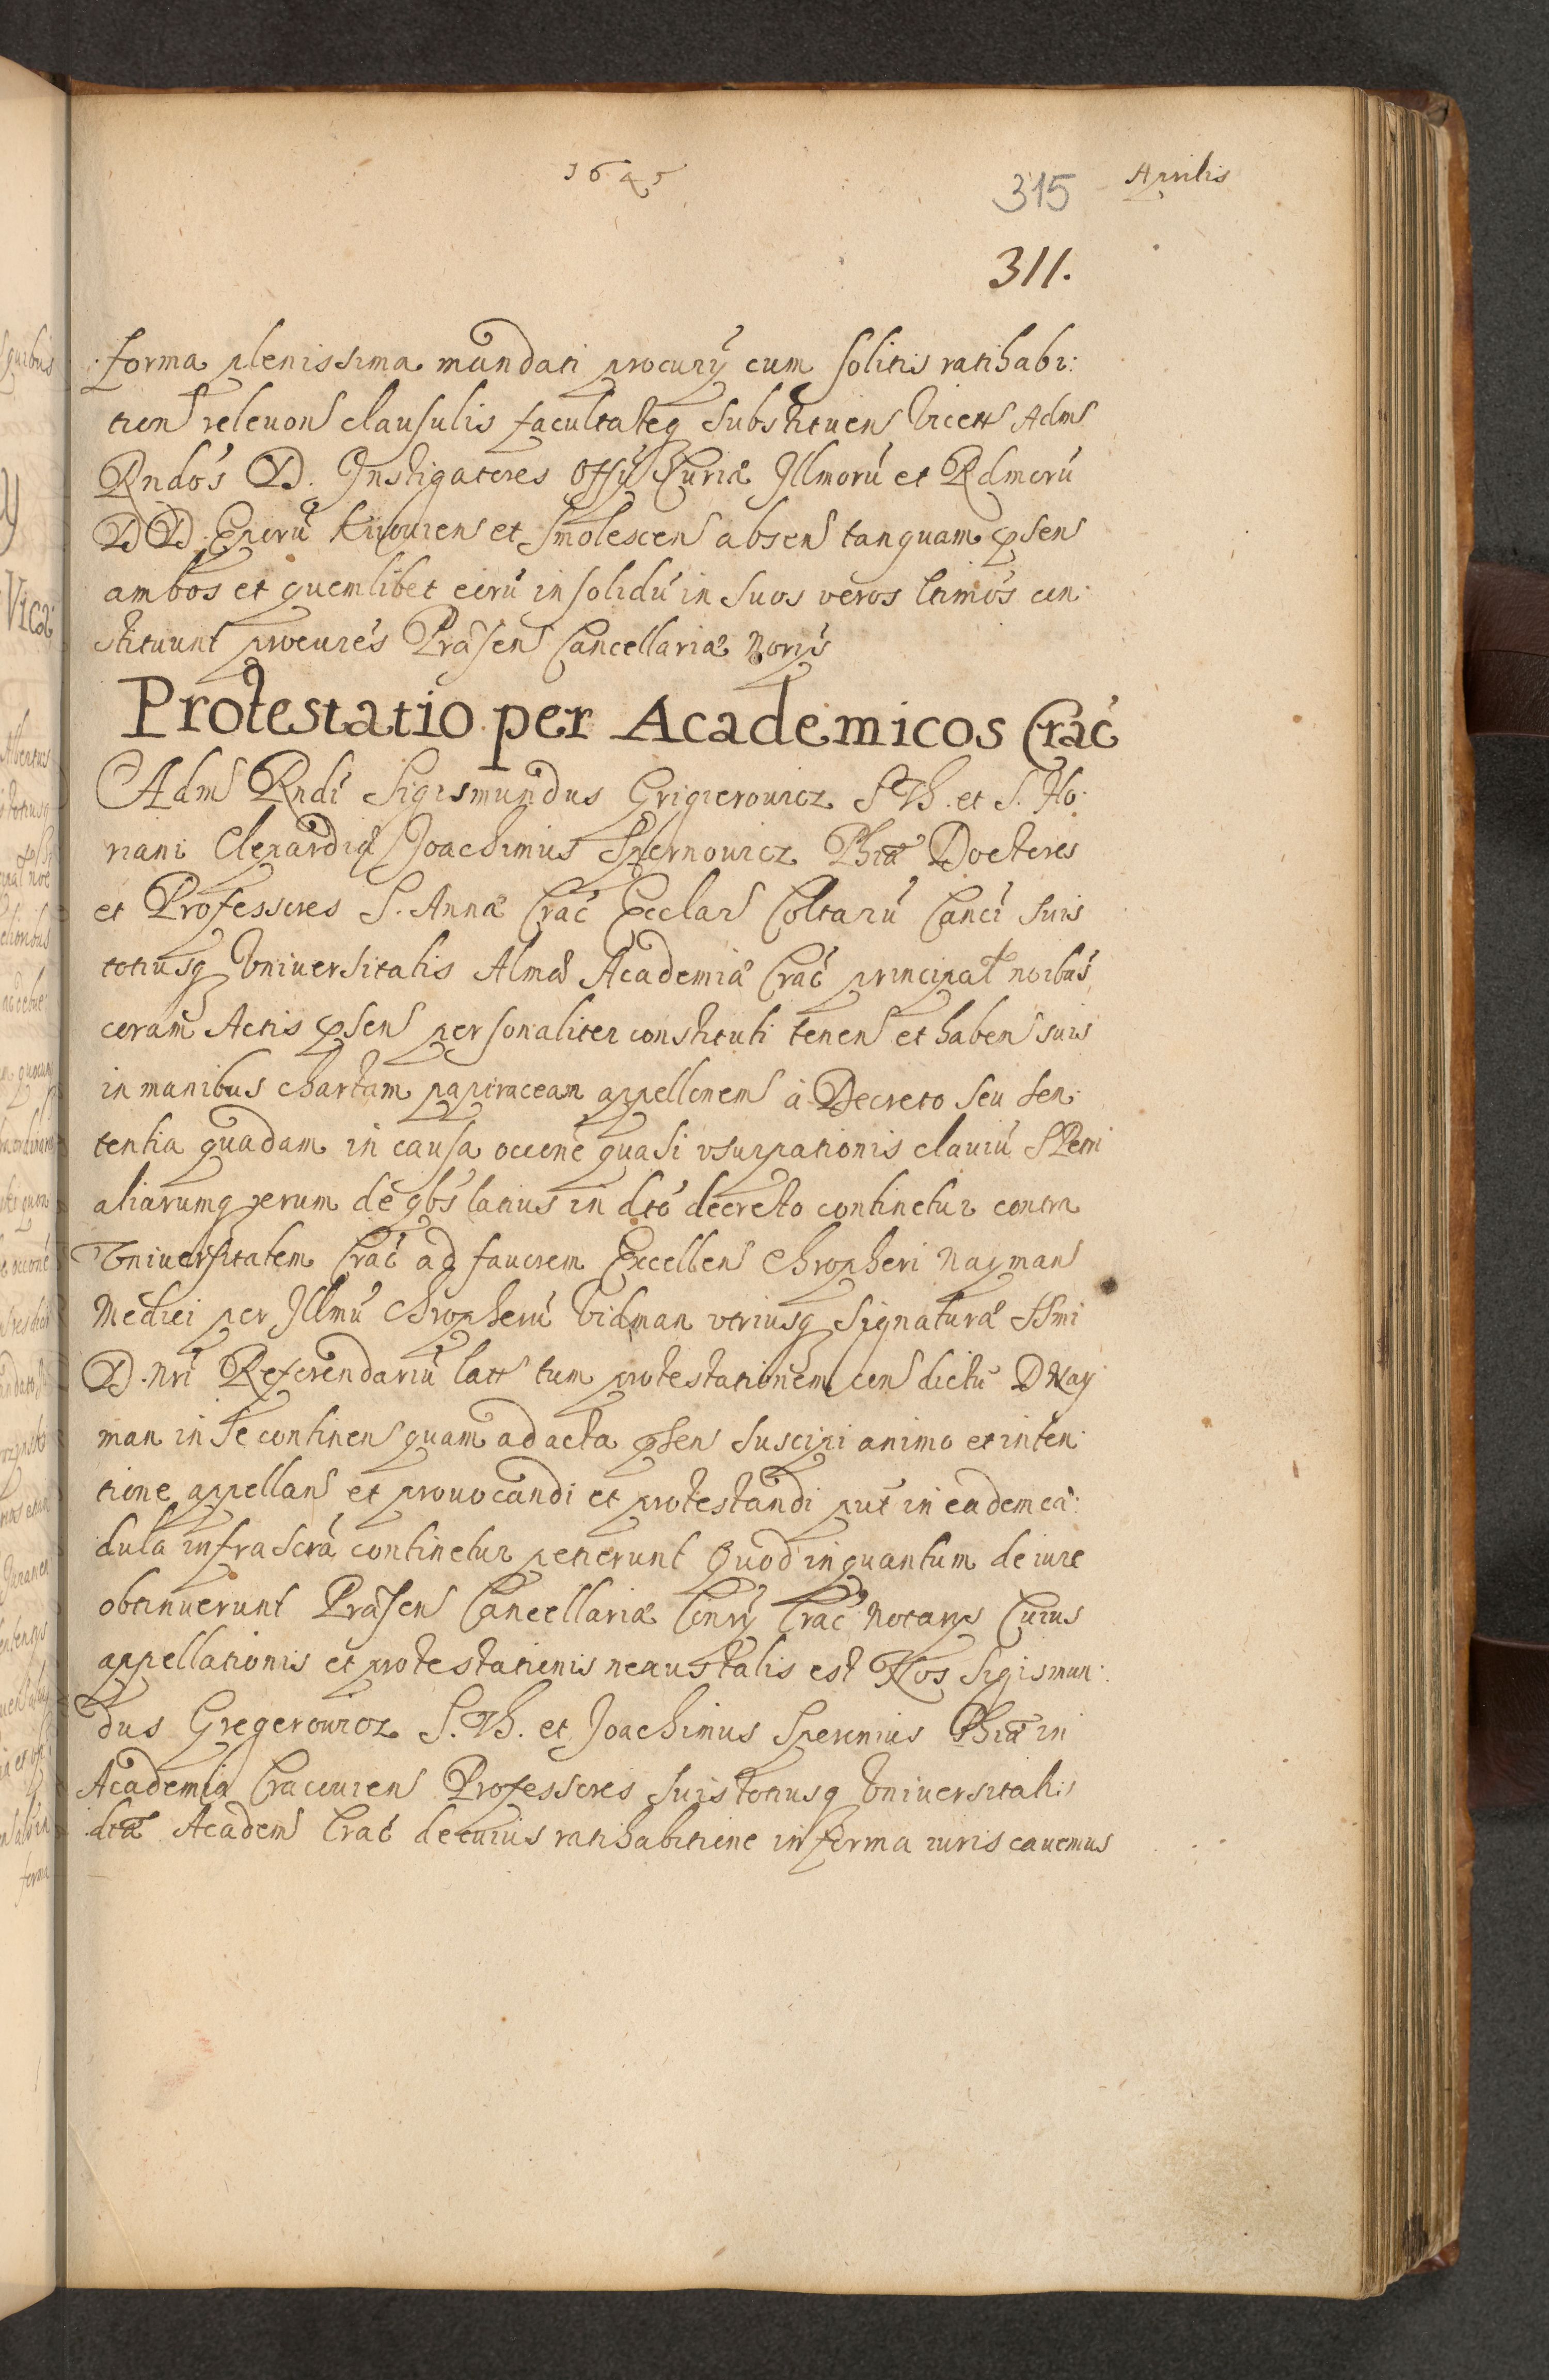 1645
Aprilis
315
311.
forma plenissima mandati procurÿ cum solitis ratihabi:
tion relevon clausulis facultateq substituen Vicen Adm
Rndos D. Instigatores Offÿ Curiæ Illmorú et Rdmorú
DD. Eporú Kijouien et Smolescen absen tanquam psen
ambos et quemlibet eorú in solidú in suos veros ltimós con:
stituunt procurés Præsen Cancellariæ Norÿs
Protestatio per Academicos Crac
Adm Rndi Sigismundus Grigierowicz S Th. et S. Flo:
riani Clepardiæ Joachimus Spernowicz Phiæ Doctores
et Professores S. Annæ Crac Ecclar Coltarú Canci suis
totiusq Universitatis Almæ Academiæ Crac principal noibus
coram Actis psen personaliter constituti tenen et haben suis
in manibus chartam papiraceam appellonem á Decreto seu sen:
tentia quadam in causa occone quasi usurpationis claviú
aliarumq rerum de qbs latius in dto decreto continetur contra
Universitatem Crac ad fauorem Excellen Chropheri Nayman
Medici per Illmú Chropherú Vidman utriusq Signaturæ SSmi
D. Nri Referendariú latt tum protestationem con dictú D Nay
man in se continen quam ad acta psen suscipi animo et inten:
tione appellan et prouocandi et protestandi put in eadem cæ:
dula infrascrá continetur petierunt Quod inquantum de iure
obtinuerunt Præsen Cancellariæ Conrÿ Crac Notarÿs Cuius
appellationis et protestationis nexus talis est Nos Sigismun:
dus Gregerowicz S. Th. et Joachimus Spernius Phiæ in
Academia Cracouien Professores suis totiusq Universitatis
dtæ Academ Crac de cuius ratihabitione in forma iuris cauemus